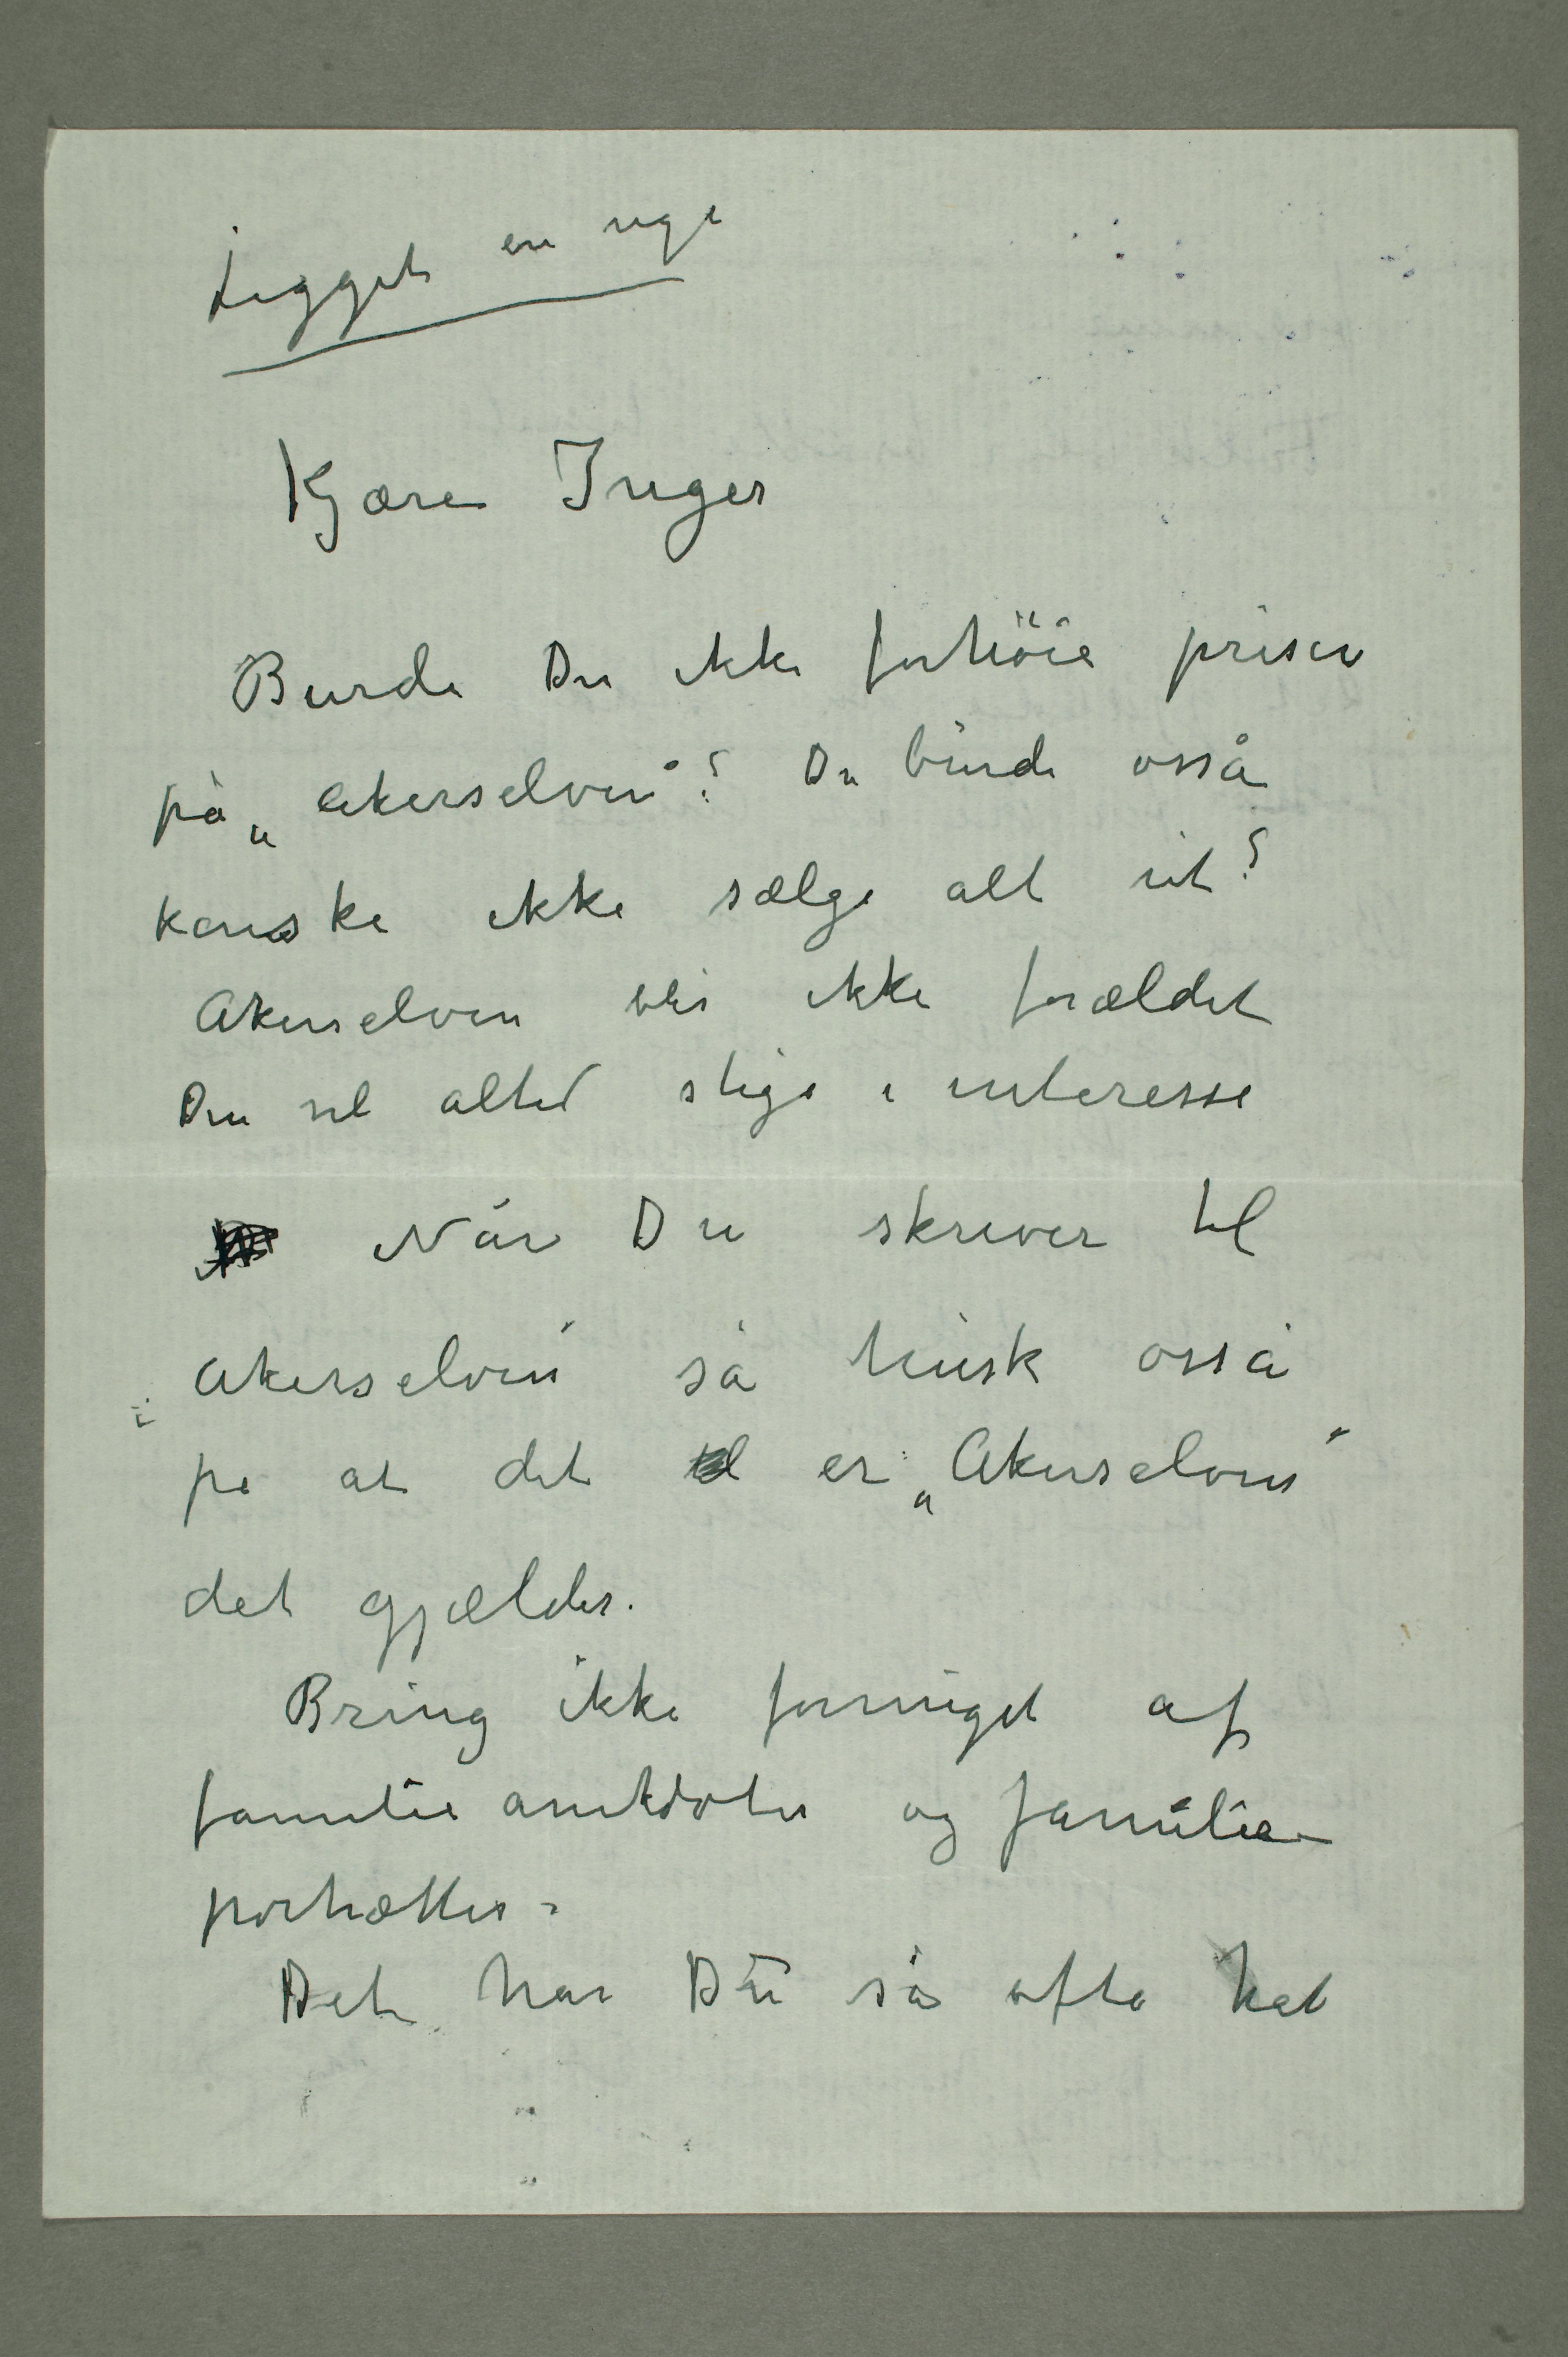 Ligget en uge
Kjære Inger
Burde Du ikke forhöie prisen
på „Akerselven“? Du burde osså
kanske ikke sælge alt ut?
Akerselven blir ikke forældet
Den vil altid stige i interesse
Når Du skriver til
„Akerselven“ så husk osså
på at det er „Akerselven“
det gjælder.
Bring ikke formeget af
familieanekdoter og familie-
portrætter.
Det har Du så ofte hat